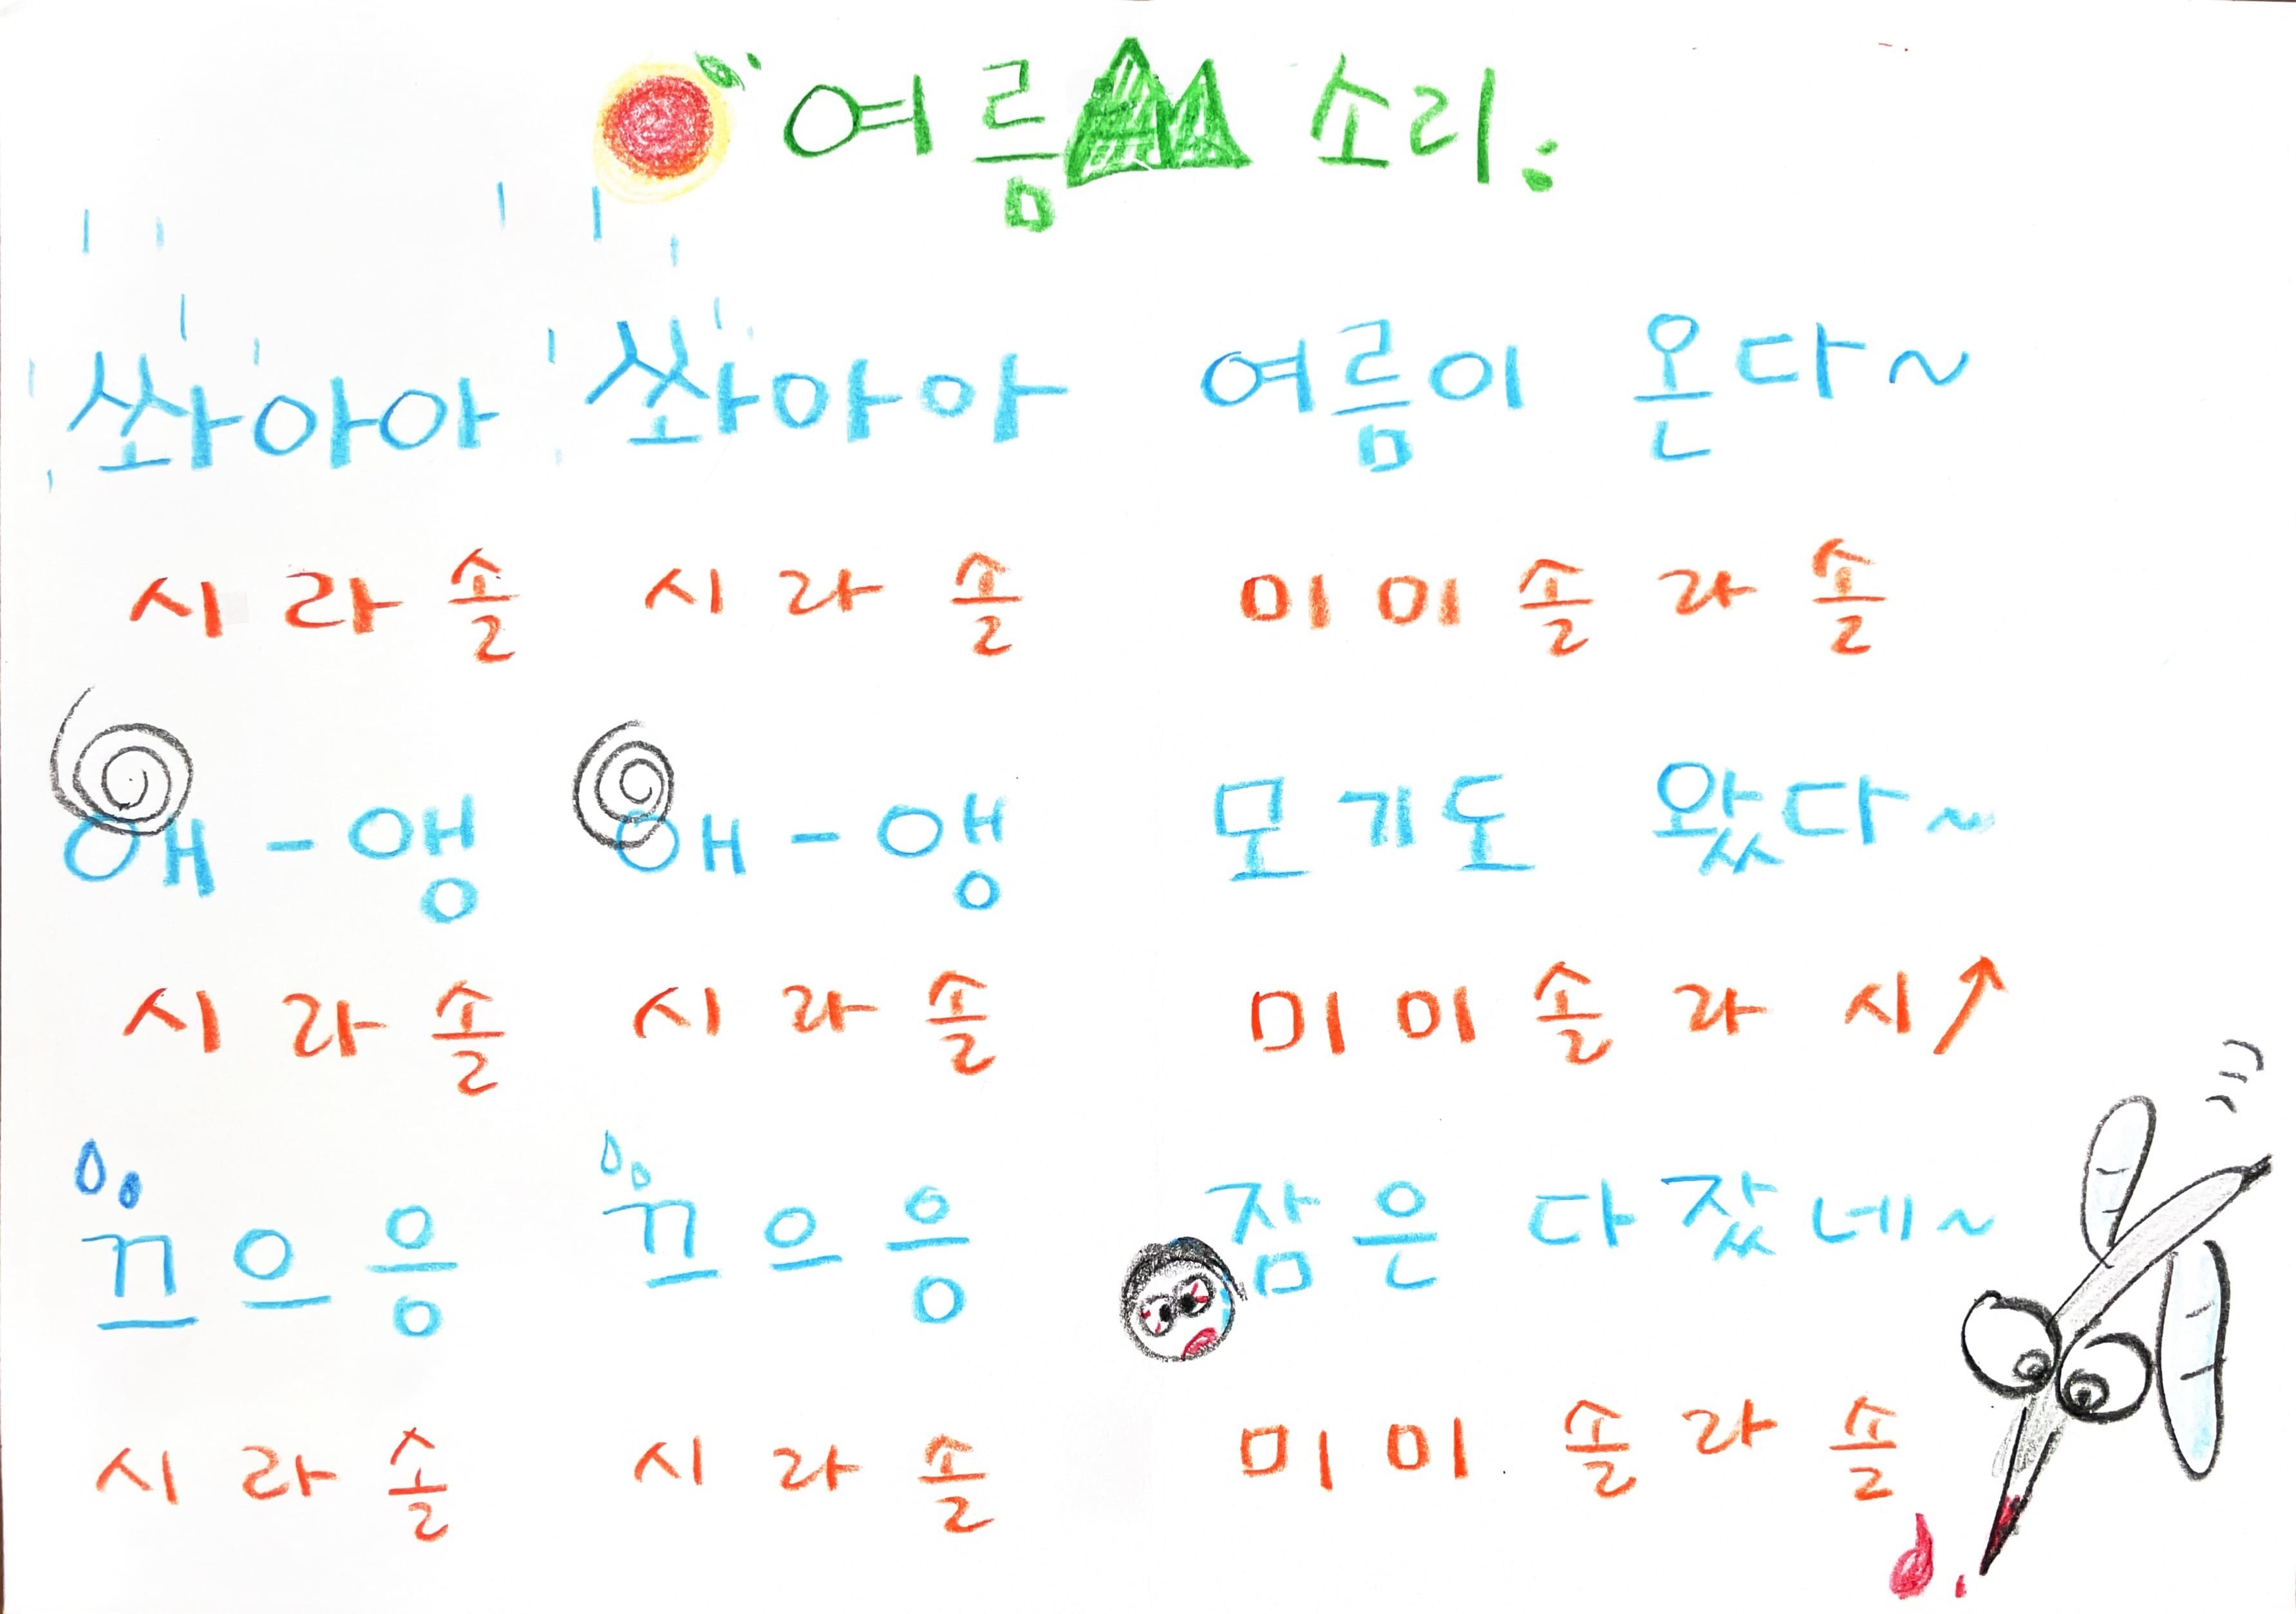 여름 소리
쏴아아 쏴아아 여름이 온다~
시 라 솔 시 라 솔 미 미 솔 라 솔
애-앵 애-앵 모기도 왔다~
시 라 솔 시 라 솔 미 미 솔 라 시↗
끄으응 끄으응 잠은 다 잤네~
시 라 솔 시 라 솔 미 미 솔 라 솔